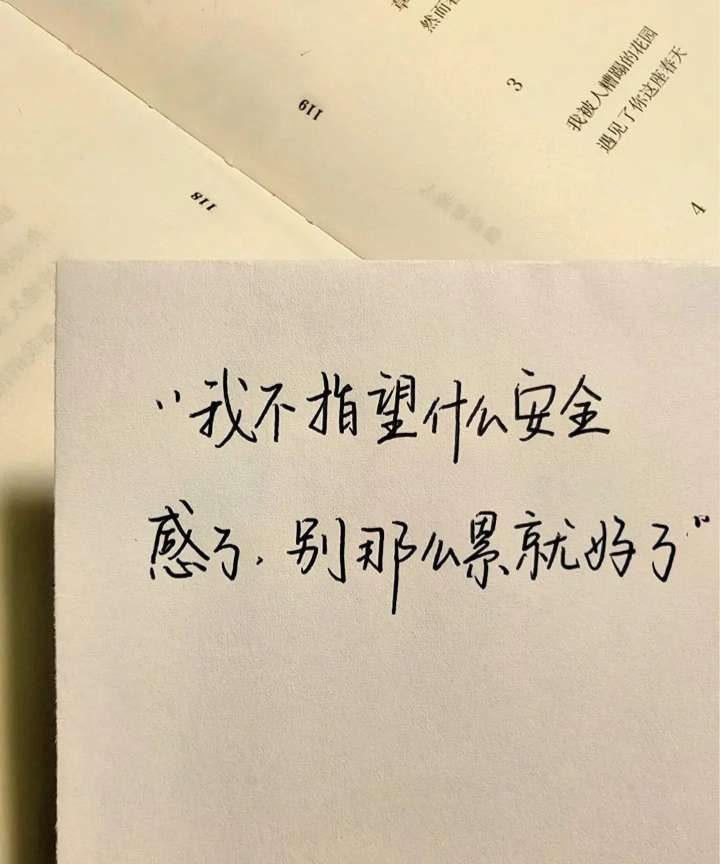 然而
3
我被人糟蹋的花园
遇见了你这座春天
4
119
118
“我不指望什么安全
感了，别那么累就好了”